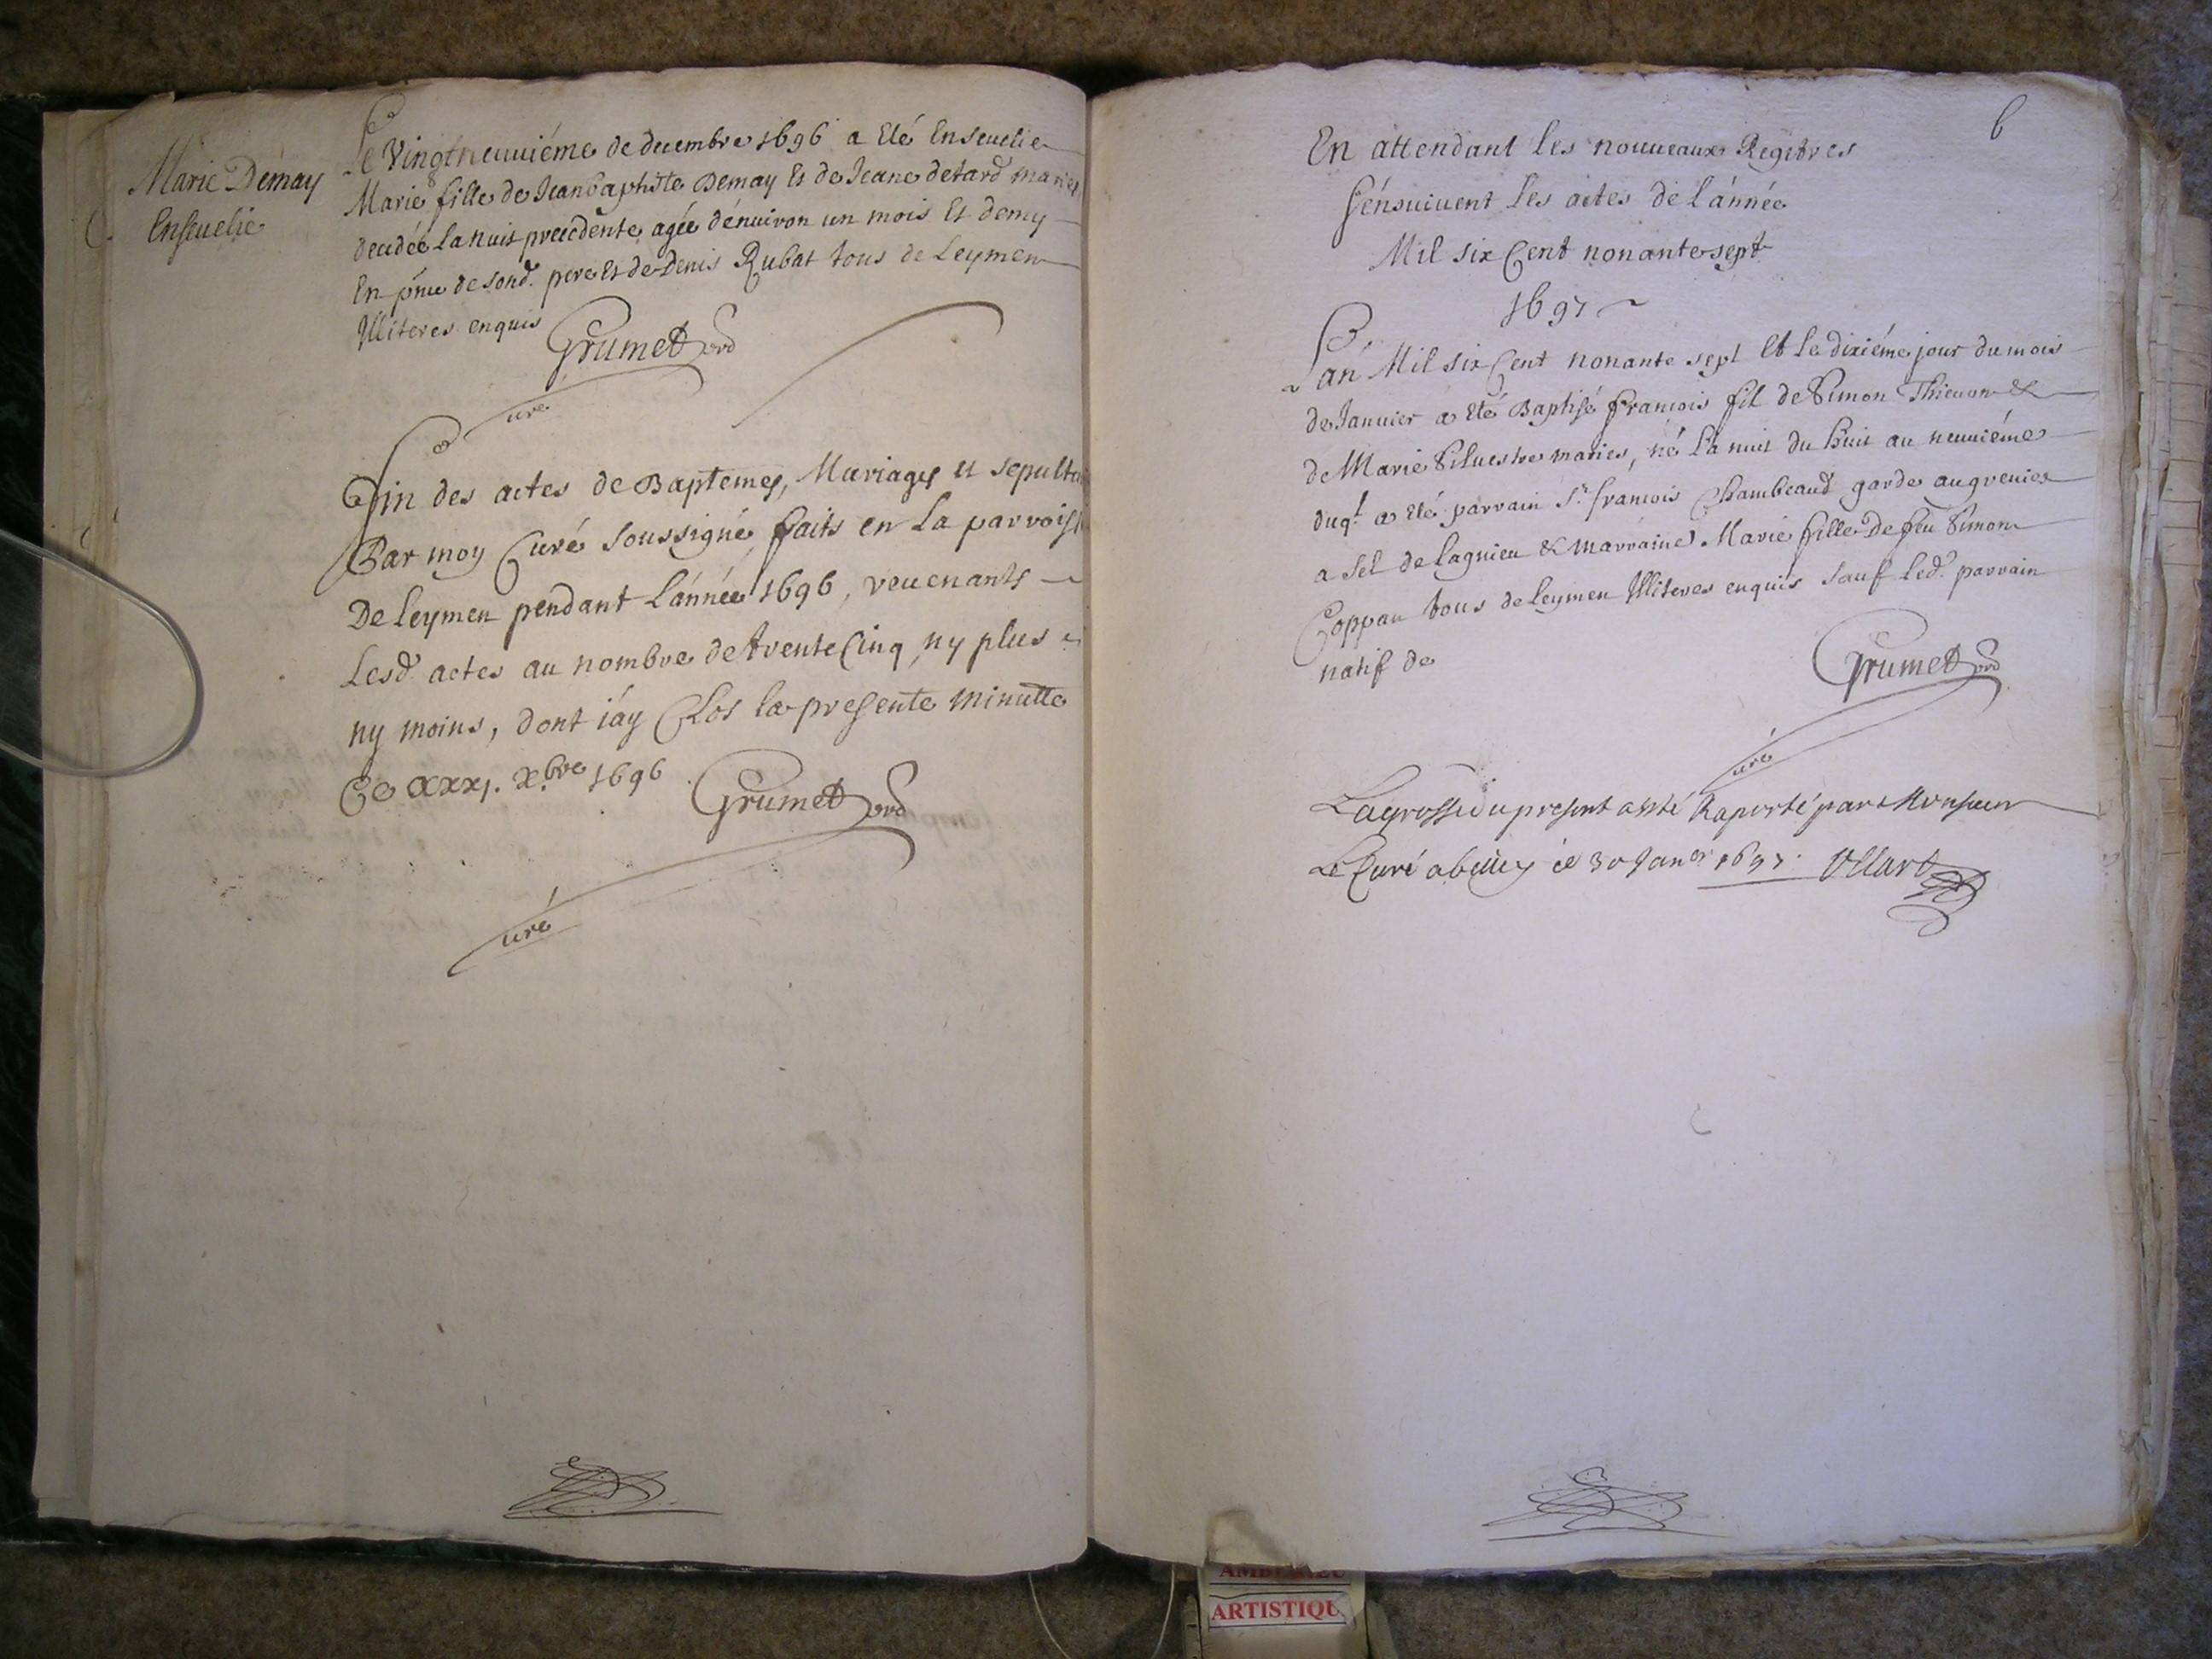 Marie Demay
Enseuelie
Le Vingtneuuiéme de decembre 1696 a Eté Enseuelie
Marie fille de Jeanbaptiste Demay Et de Jeane detard maries
decedée la nuit precedente agée d'enuiron un mois Et demy
En pñce de sond. pere Et de Denis Rubat tous de Leymen
Illiteres enquis
Grumet
curé
Fin des actes de Baptemes, Mariages et sepultures
Par moy Curé soussigné, faits en la parroisse
De leymen pendant l'année 1696, reuenants
Lesd. actes au nombre de trente Cinq, ny plus
ny moins, dont i'ay Clos la presente minutte
Ce xxxj. xbre 1696
Grumet
curé
6
En attendant les nouueaux Regitres
S'énsuiuent les actes de l'année
Mil six Cent nonante sept
1697
L'an Mil six Cent nonante sept Et le dixiéme jour du mois
de Januier a Eté Baptisé francois fil de Simon Thieuon &
de Marie Siluestre maries, né la nuit du huit au neuuiéme
duqt. a eté parrain Sr. francois Chambeaud garde au grenier
a sel de lagnieu & marraine Marie fille De feu Simon
Coppau tous de leymen Illiteres enquis sauf led. parrain
natif de
Grumet
curé
La grosse du present a esté Raporté par Monsieur
Le Curé a belley ce 30 Janer 1697.
ARTISTIQU